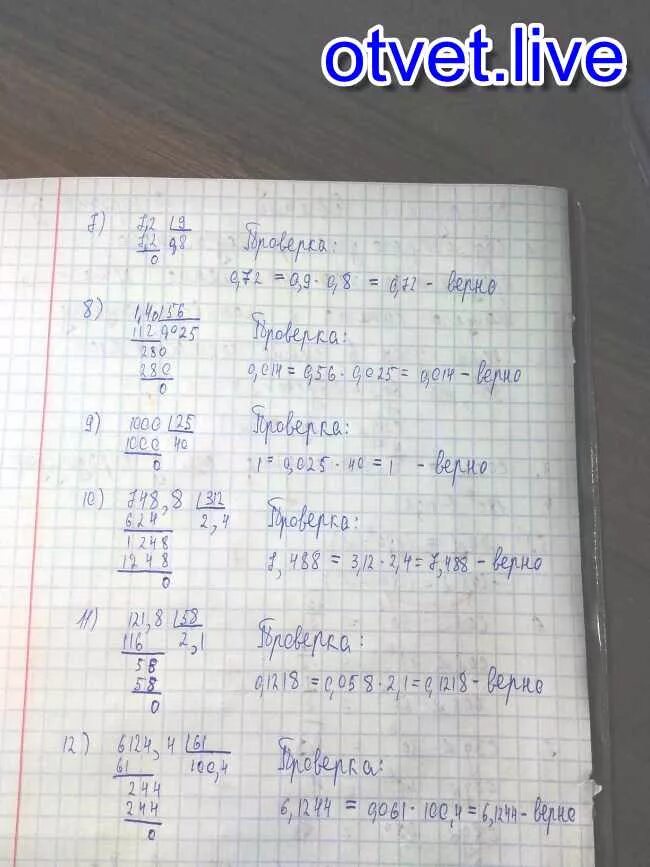 otvet.live
7) 7,2 9
7,2 0,8 Проверка:
0
0,72 = 0,9 · 0,8 = 0,72 - верно
8) 1,40 56
112 0,025 Проверка:
280
280 0,014 = 0,56 · 0,025 = 0,014 - верно
0
9) 1000 25 Проверка:
1000 40
0 1 = 0,025 · 40 = 1 - верно
10) 748,8 312
624 2,4 Проверка:
1248
1248 7,488 = 3,12 · 2,4 = 7,488 - верно
0
11) 121,8 58
116 2,1 Проверка:
58
58 0,1218 = 0,058 · 2,1 = 0,1218 - верно
0
12) 6124,4 61
61 100,4 Проверка:
244
244 6,1244 = 0,061 · 100,4 = 6,1244 - верно
0